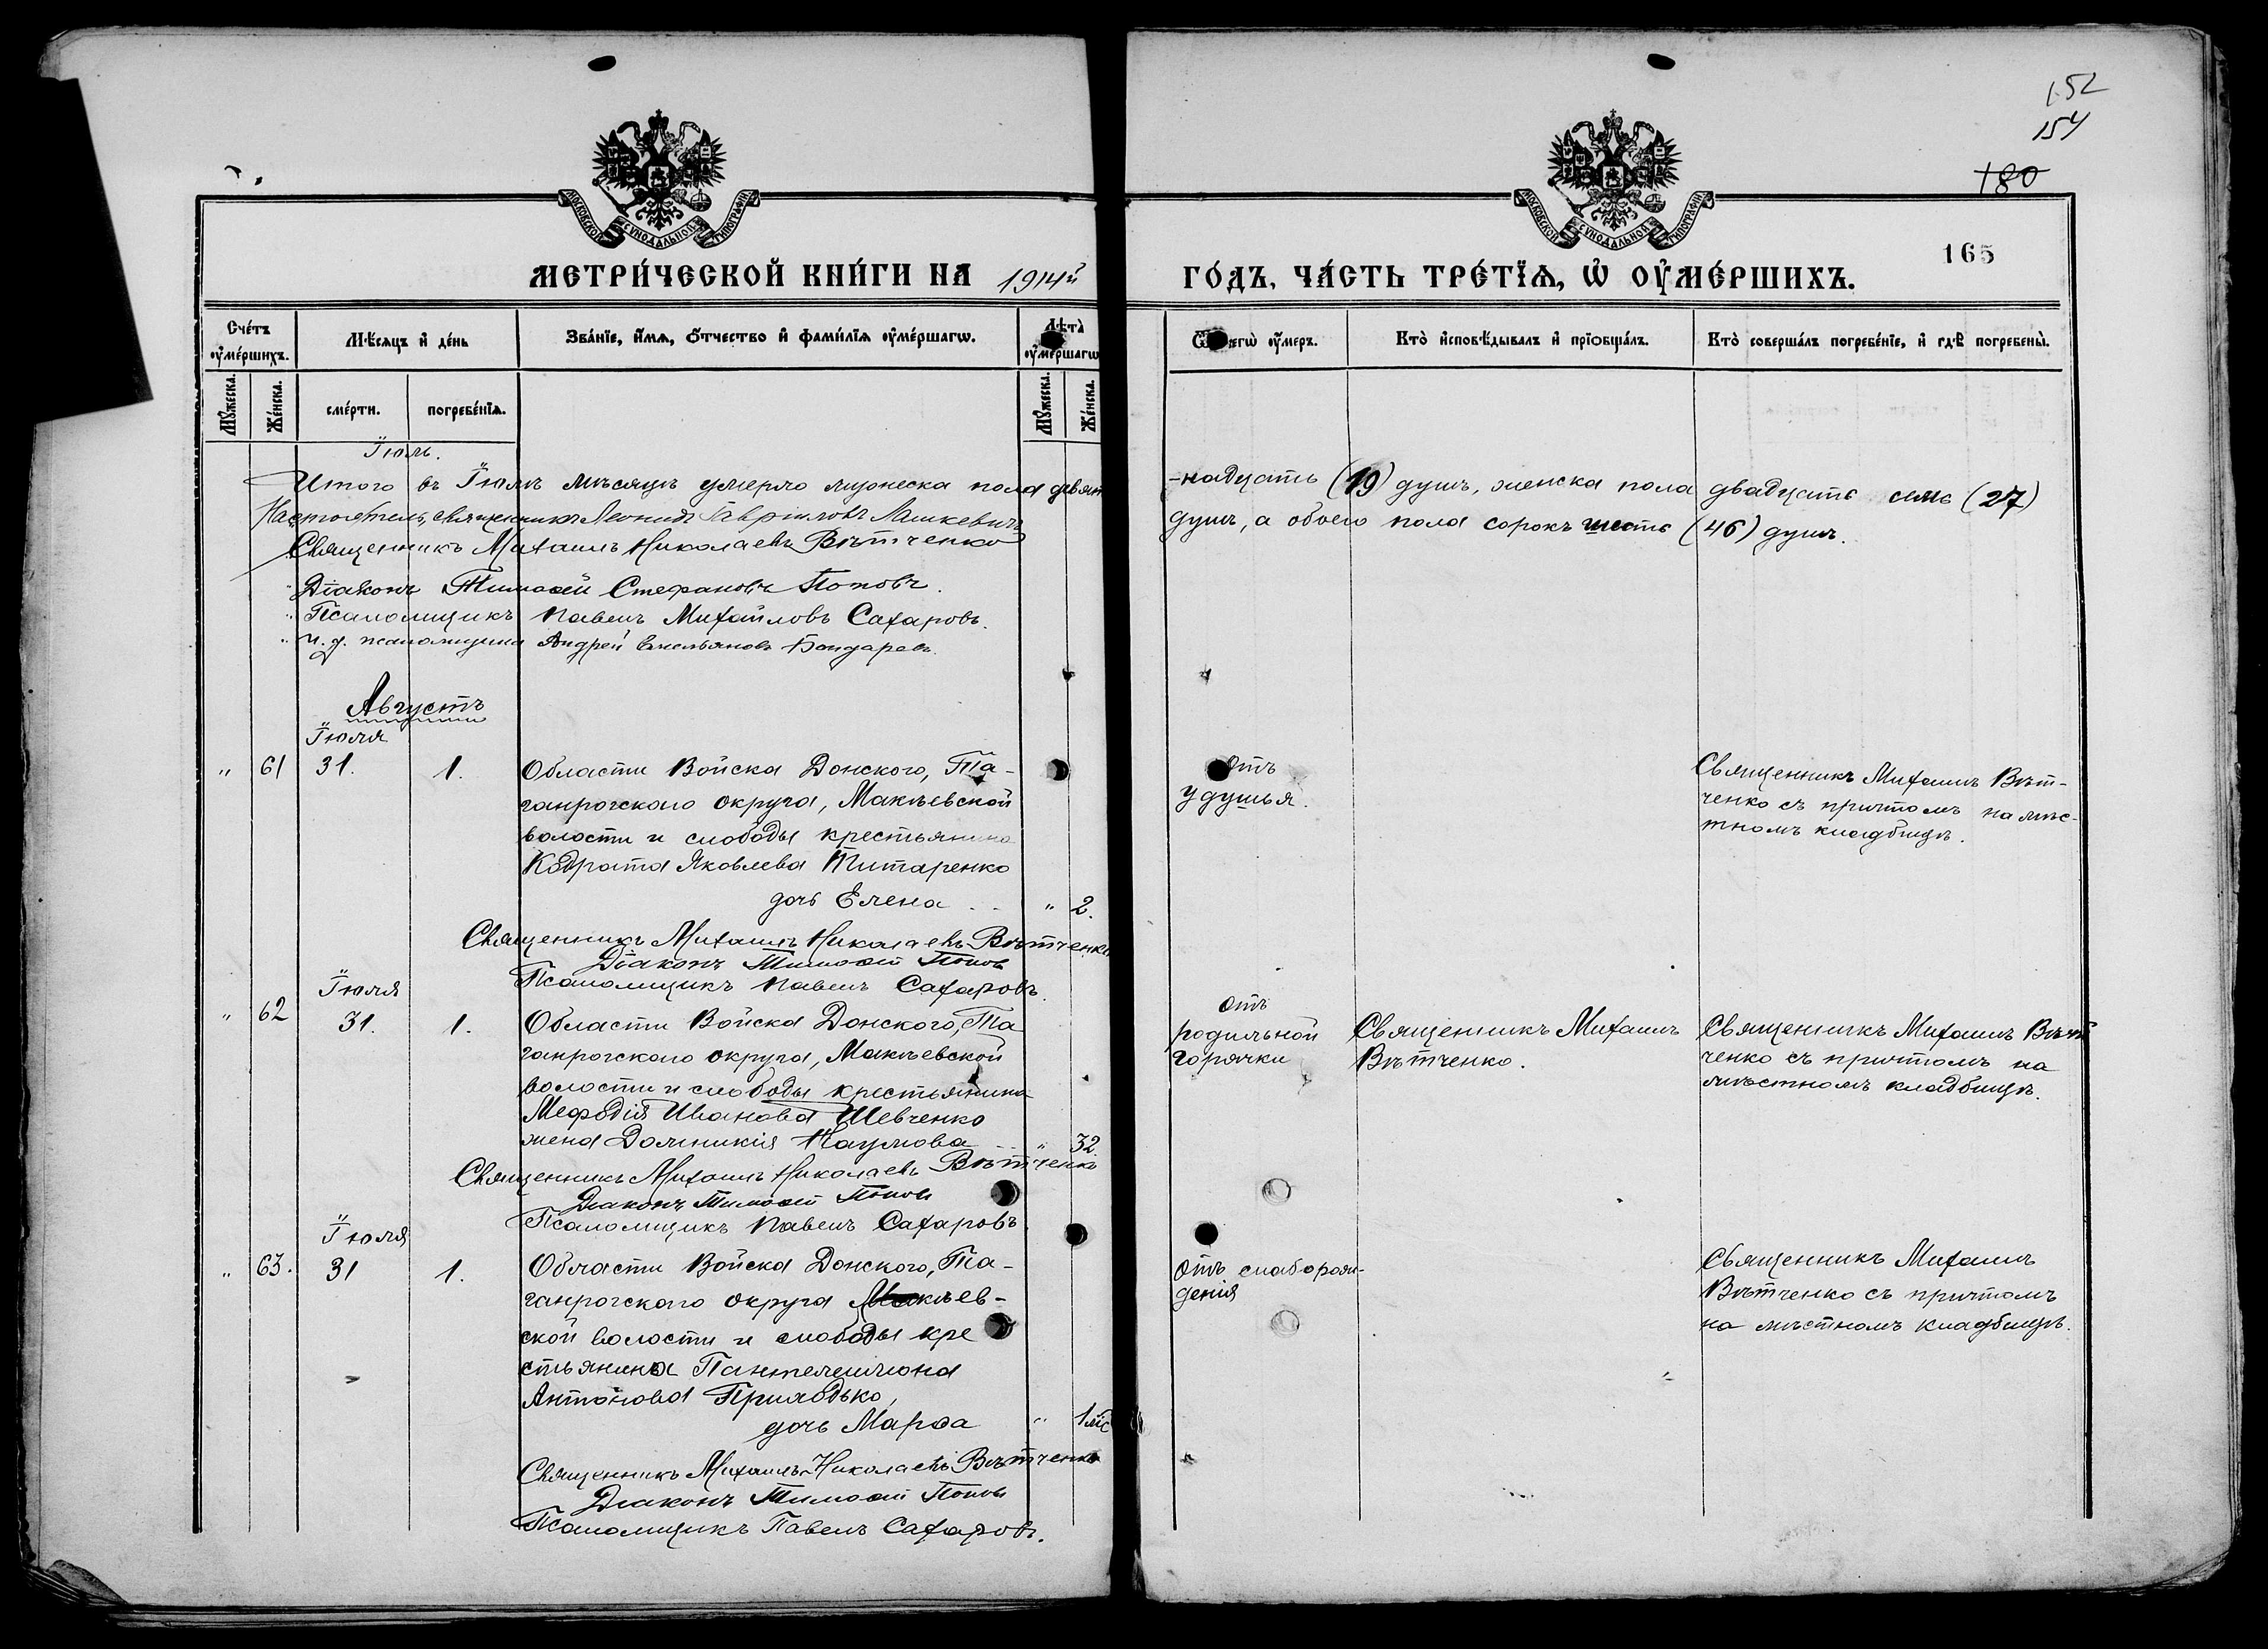 152
154
180
165
МОСКОВСКОЙ СѴНОДАЛЬНОЙ ТИПОГРАФІИ
МОСКОВСКОЙ СѴНОДАЛЬНОЙ ТИПОГРАФІИ
МЕТРИ́ЧЕСКОЙ КНИ́ГИ НА 1914й
ГО́ДЪ, ЧА́СТЬ ТРЕ́ТЇѦ, Ѽ ОУ҆МЕ́РШИХЪ.
Сче́тъ оу҆ме́ршихъ.
Мѣ́сяцъ и҆ де́нь
Зва́нїе, и҆́мѧ, ѻ҆́тчество и҆ фами́лїѧ оу҆ме́ршагѡ.
Лѣ́та оу҆ме́ршагѡ
чегѡ̀ оу҆́меръ.
Кто̀ и҆сповѣ́дывалъ и҆ прїѡбща́лъ.
Кто̀ соверша́лъ погребе́нїе, и҆ гдѣ̀ погребены̀.
Мꙋ́жеска.
Же́нска.
сме́рти.
погребе́нїѧ.
Мꙋ́жеска.
Же́нска.
Іюль.
Итого въ Іюлѣ мѣсяцѣ умерло мужеска пола девят
-надцать (19) душъ, женска пола двадцать семь (27)
душъ, а обоего пола сорокъ шесть (46) душъ.
Настоятель, священникъ Леонидъ Гавриловъ Лашкевичъ
Священникъ Михаилъ Николаевъ Вѣтченко
Діаконъ Тимоѳей Стефановъ Поповъ.
Псаломщикъ Павелъ Михайловъ Сахаровъ.
И. д. псаломщика Андрей Емельяновъ Бондаревъ.
Августъ
Іюля
" 61 31. 1. Области Войска Донского, Та-
ганрогскаго округа, Макѣевской
волости и слободы крестьянина
Кодрата Яковлева Титаренко
дочь Елена " 2.
отъ
удушья.
Священникъ Михаилъ Вѣт-
ченко съ причтомъ на мѣс-
тномъ кладбищѣ.
Священникъ Михаилъ Николаевъ Вѣтченко
Діаконъ Тимоѳей Поповъ
Псаломщикъ Павелъ Сахаровъ.
Іюля
" 62 31. 1. Области Войска Донского, Та
ганрогскаго округа, Макѣевской
волости и слободы крестьянина
Меѳодія Иванова Шевченко
жена Домникія Наумова " 32.
отъ
родильной
горячки
Священникъ Михаилъ
Вѣтченко.
Священникъ Михаилъ Вѣт
ченко съ причтомъ на
мѣстномъ кладбищѣ.
Священникъ Михаилъ Николаевъ Вѣтченко
Діаконъ Тимоѳей Поповъ
Псаломщикъ Павелъ Сахаровъ.
Іюля
" 63. 31 1. Области Войска Донского, Та-
ганрогскаго округа Макѣев-
ской волости и слободы кре
стьянина Пантелеимона
Антонова Приходько,
дочь Марѳа " 1 мѣс
отъ слаборож-
денія
Священникъ Михаилъ
Вѣтченко съ причтомъ
на мѣстномъ кладбищѣ.
Священникъ Михаилъ Николаевъ Вѣтченко
Діаконъ Тимоѳей Поповъ
Псаломщикъ Павелъ Сахаровъ.